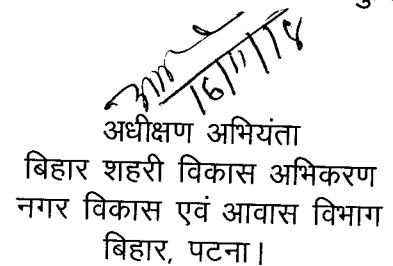 16/11/18
अधीक्षण अभियंता
बिहार शहरी विकास अभिकरण
नगर विकास एवं आवास विभाग
बिहार, पटना।